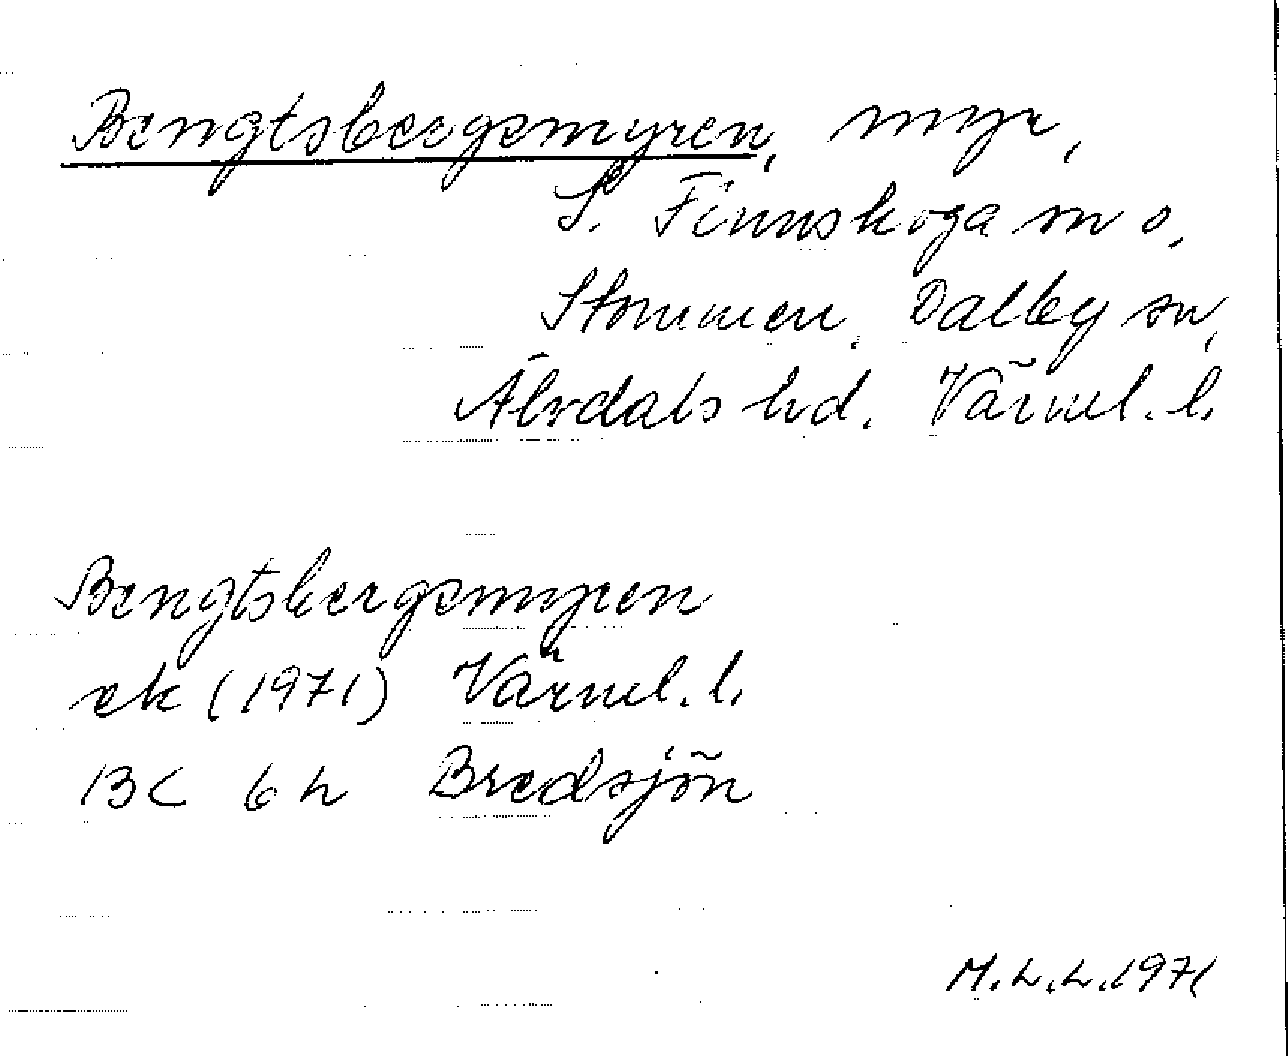 Bengtsbergsmyren, myr,
S. Finnskoga sn o.
Stommen, Dalby sn,
Älvdals hd. Värml. l.
Bengtsbergsmyren
ek (1971) Värml. l.
13C 6h Bredsjön
M.L.L. 1971